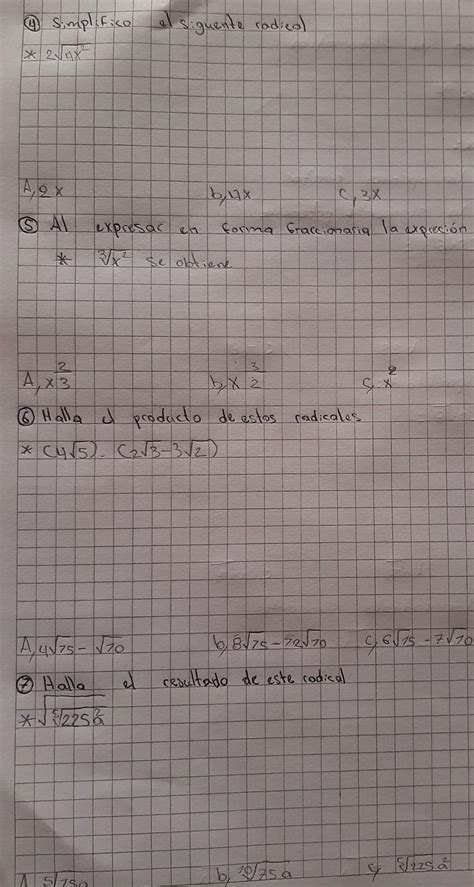 ④ Simplifico el siguente radical
* 2√4x²
A, 2x b, 4x c, 3x
⑤ Al expresar en forma fraccionaria la expreción
* ∛x² se obtiene
A, x^2/3 b, x^3/2 c, x^2
⑥ Halla el producto de estos radicales
* (4√5) . (2√3-3√2)
A, 4√15 - √10 b, 8√15 - 12√10 c, 6√15 - 7√10
⑦ Halla el resultado de este radical
* √⁵√225a²
A ⁵√15a b, ¹⁰√15a c, ⁵√225a²